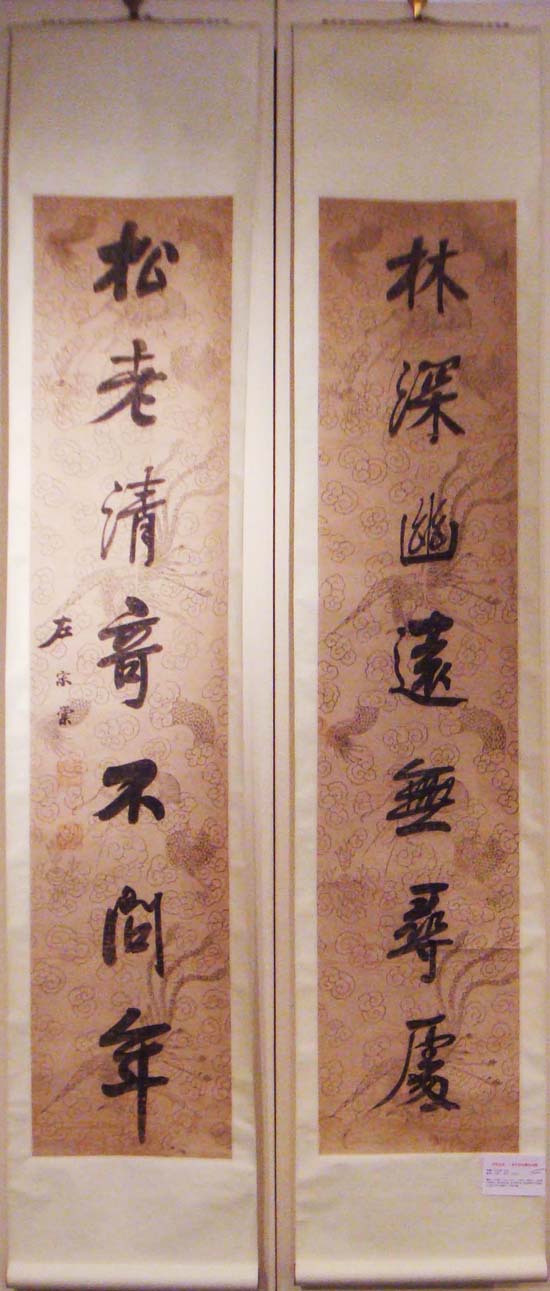 林深幽遠無尋處
松老清奇不問年
左宗棠